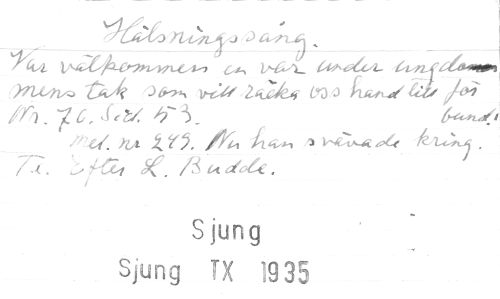 Hälsningssång.
Var välkommen en var under ungdo
mens tak som vill räcka oss hand till för
Nr. 70. Sid. 53. bund.
Mel. nr 249. Nu han svävade kring.
Te. Efter L. Budde.
Sjung
Sjung TX 1935